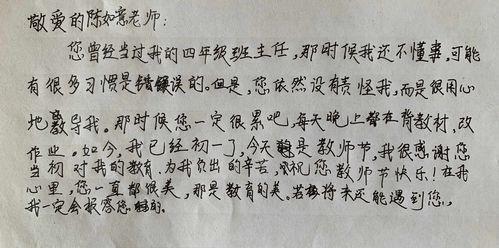 敬爱的陈如意老师：
您曾经当过我的四年级班主任，那时候我还不懂事，可能
有很多习惯是错误的。但是，您依然没有责怪我，而是很用心
地教导我。那时候您一定很累吧，每天晚上都在背教材，改
作业。如今，我已经初一了，今天是教师节，我很感谢您
当初对我的教育，为我负出的辛苦，祝您教师节快乐！在我
心里，您一直都很美，那是教育的美。若将来还能遇到您，
我一定会报答您的。